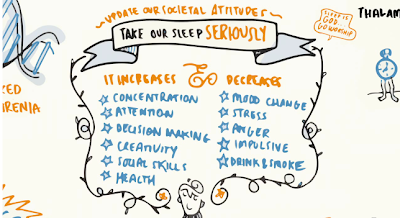 UPDATE OUR SOCIETAL ATTITUDES
TAKE OUR SLEEP SERIOUSLY
SLEEP IS
GOD.
GO WORSHIP
THALAM
IT INCREASES
DECREASES
CONCENTRATION
ATTENTION
DECISION MAKING
CREATIVITY
SOCIAL SKILLS
HEALTH
MOOD CHANGE
STRESS
ANGER
IMPULSIVE
DRINK & SMOKE
ZED
RENIA